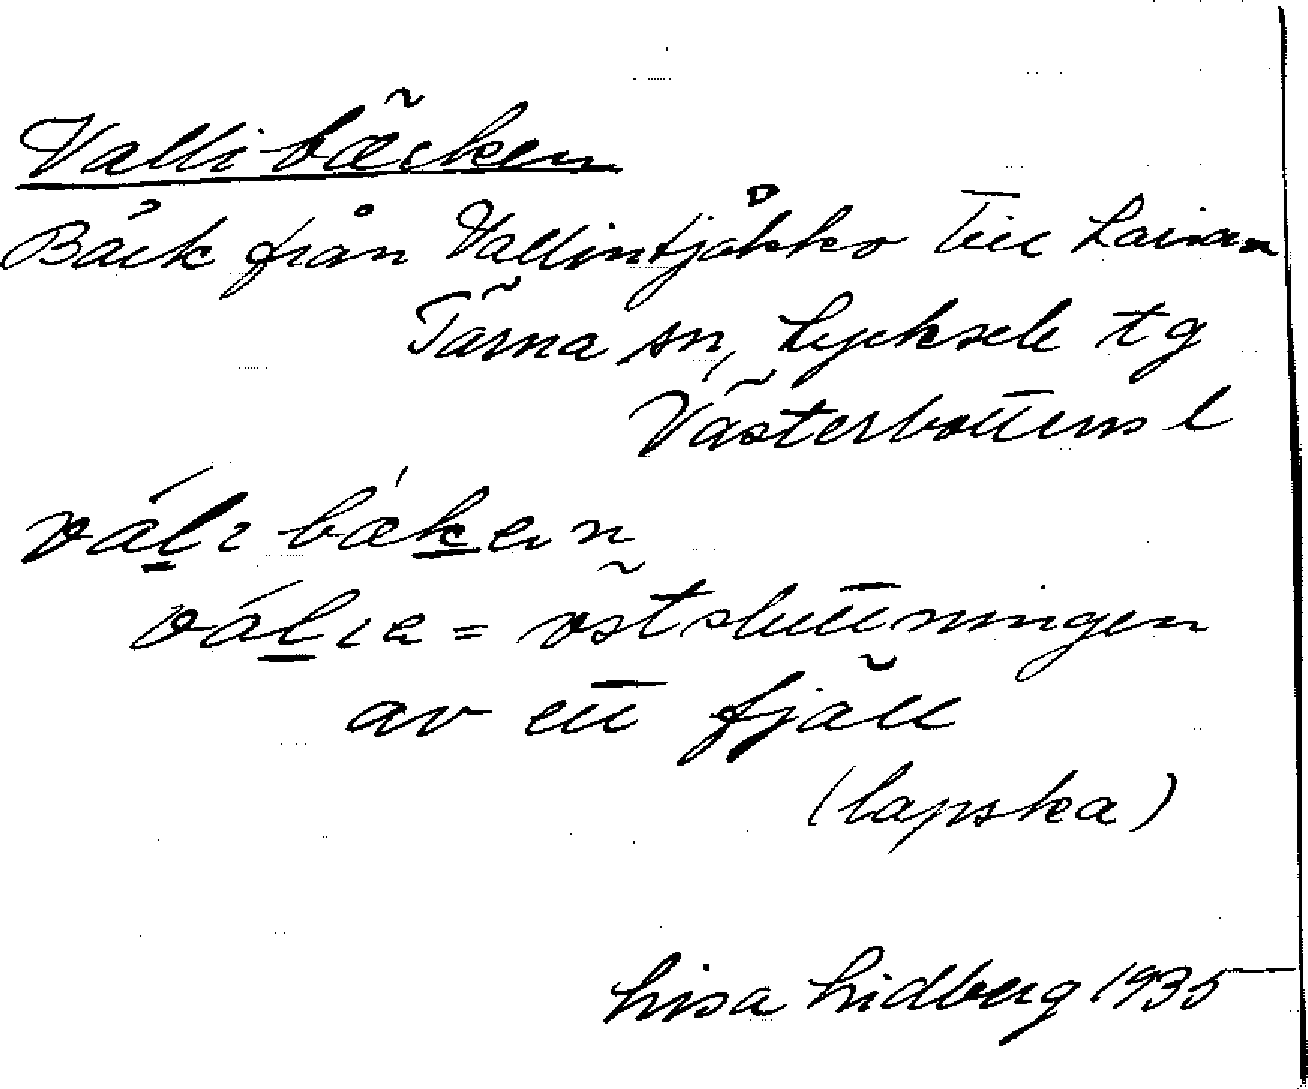 Vallibäcken
Bäck från Vallintjåkko till Laisan
Tärna sn, Lycksele tg
Västerbottens l
váli bækən
válie = östsluttningen
av ett fjäll
(lapska)
Lisa Lidberg 1935